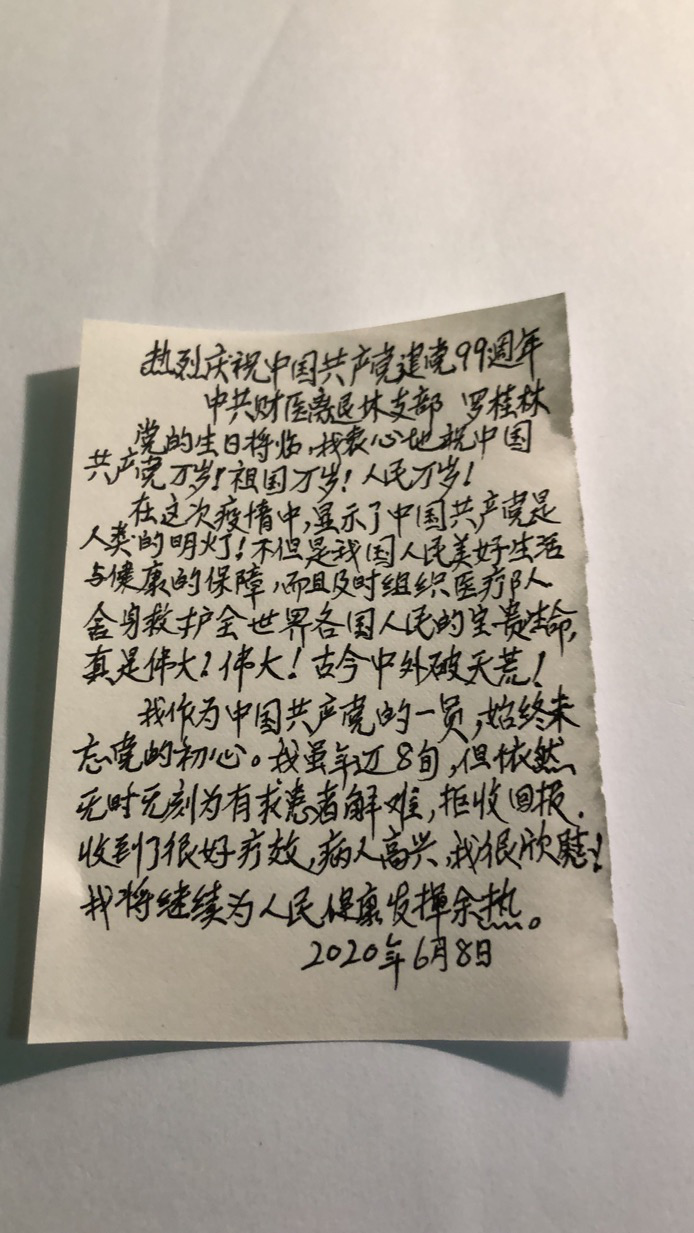 热烈庆祝中国共产党建党99週年
中共财医离退休支部 罗桂林
党的生日将临,我衷心地祝中国
共产党万岁!祖国万岁!人民万岁!
在这次疫情中,显示了中国共产党是
人类的明灯!不但是我国人民美好生活
与健康的保障,而且及时组织医疗队
舍身救护全世界各国人民的宝贵生命,
真是伟大!伟大!古今中外破天荒!
我作为中国共产党的一员,始终未
忘党的初心。我虽年近8旬,但依然
无时无刻为有求患者解难,拒收回报.
收到了很好疗效,病人高兴,我很欣慰!
我将继续为人民健康发揮余热。
2020年6月8日